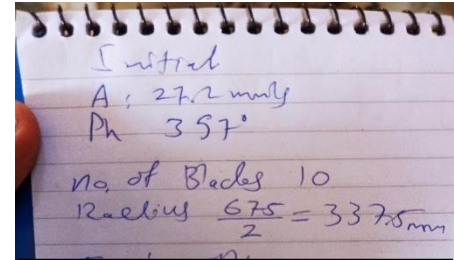 Initial
A: 27.2 mm/s
Ph 357°
no. of Blades 10
Radius 675/2 = 337.5mm